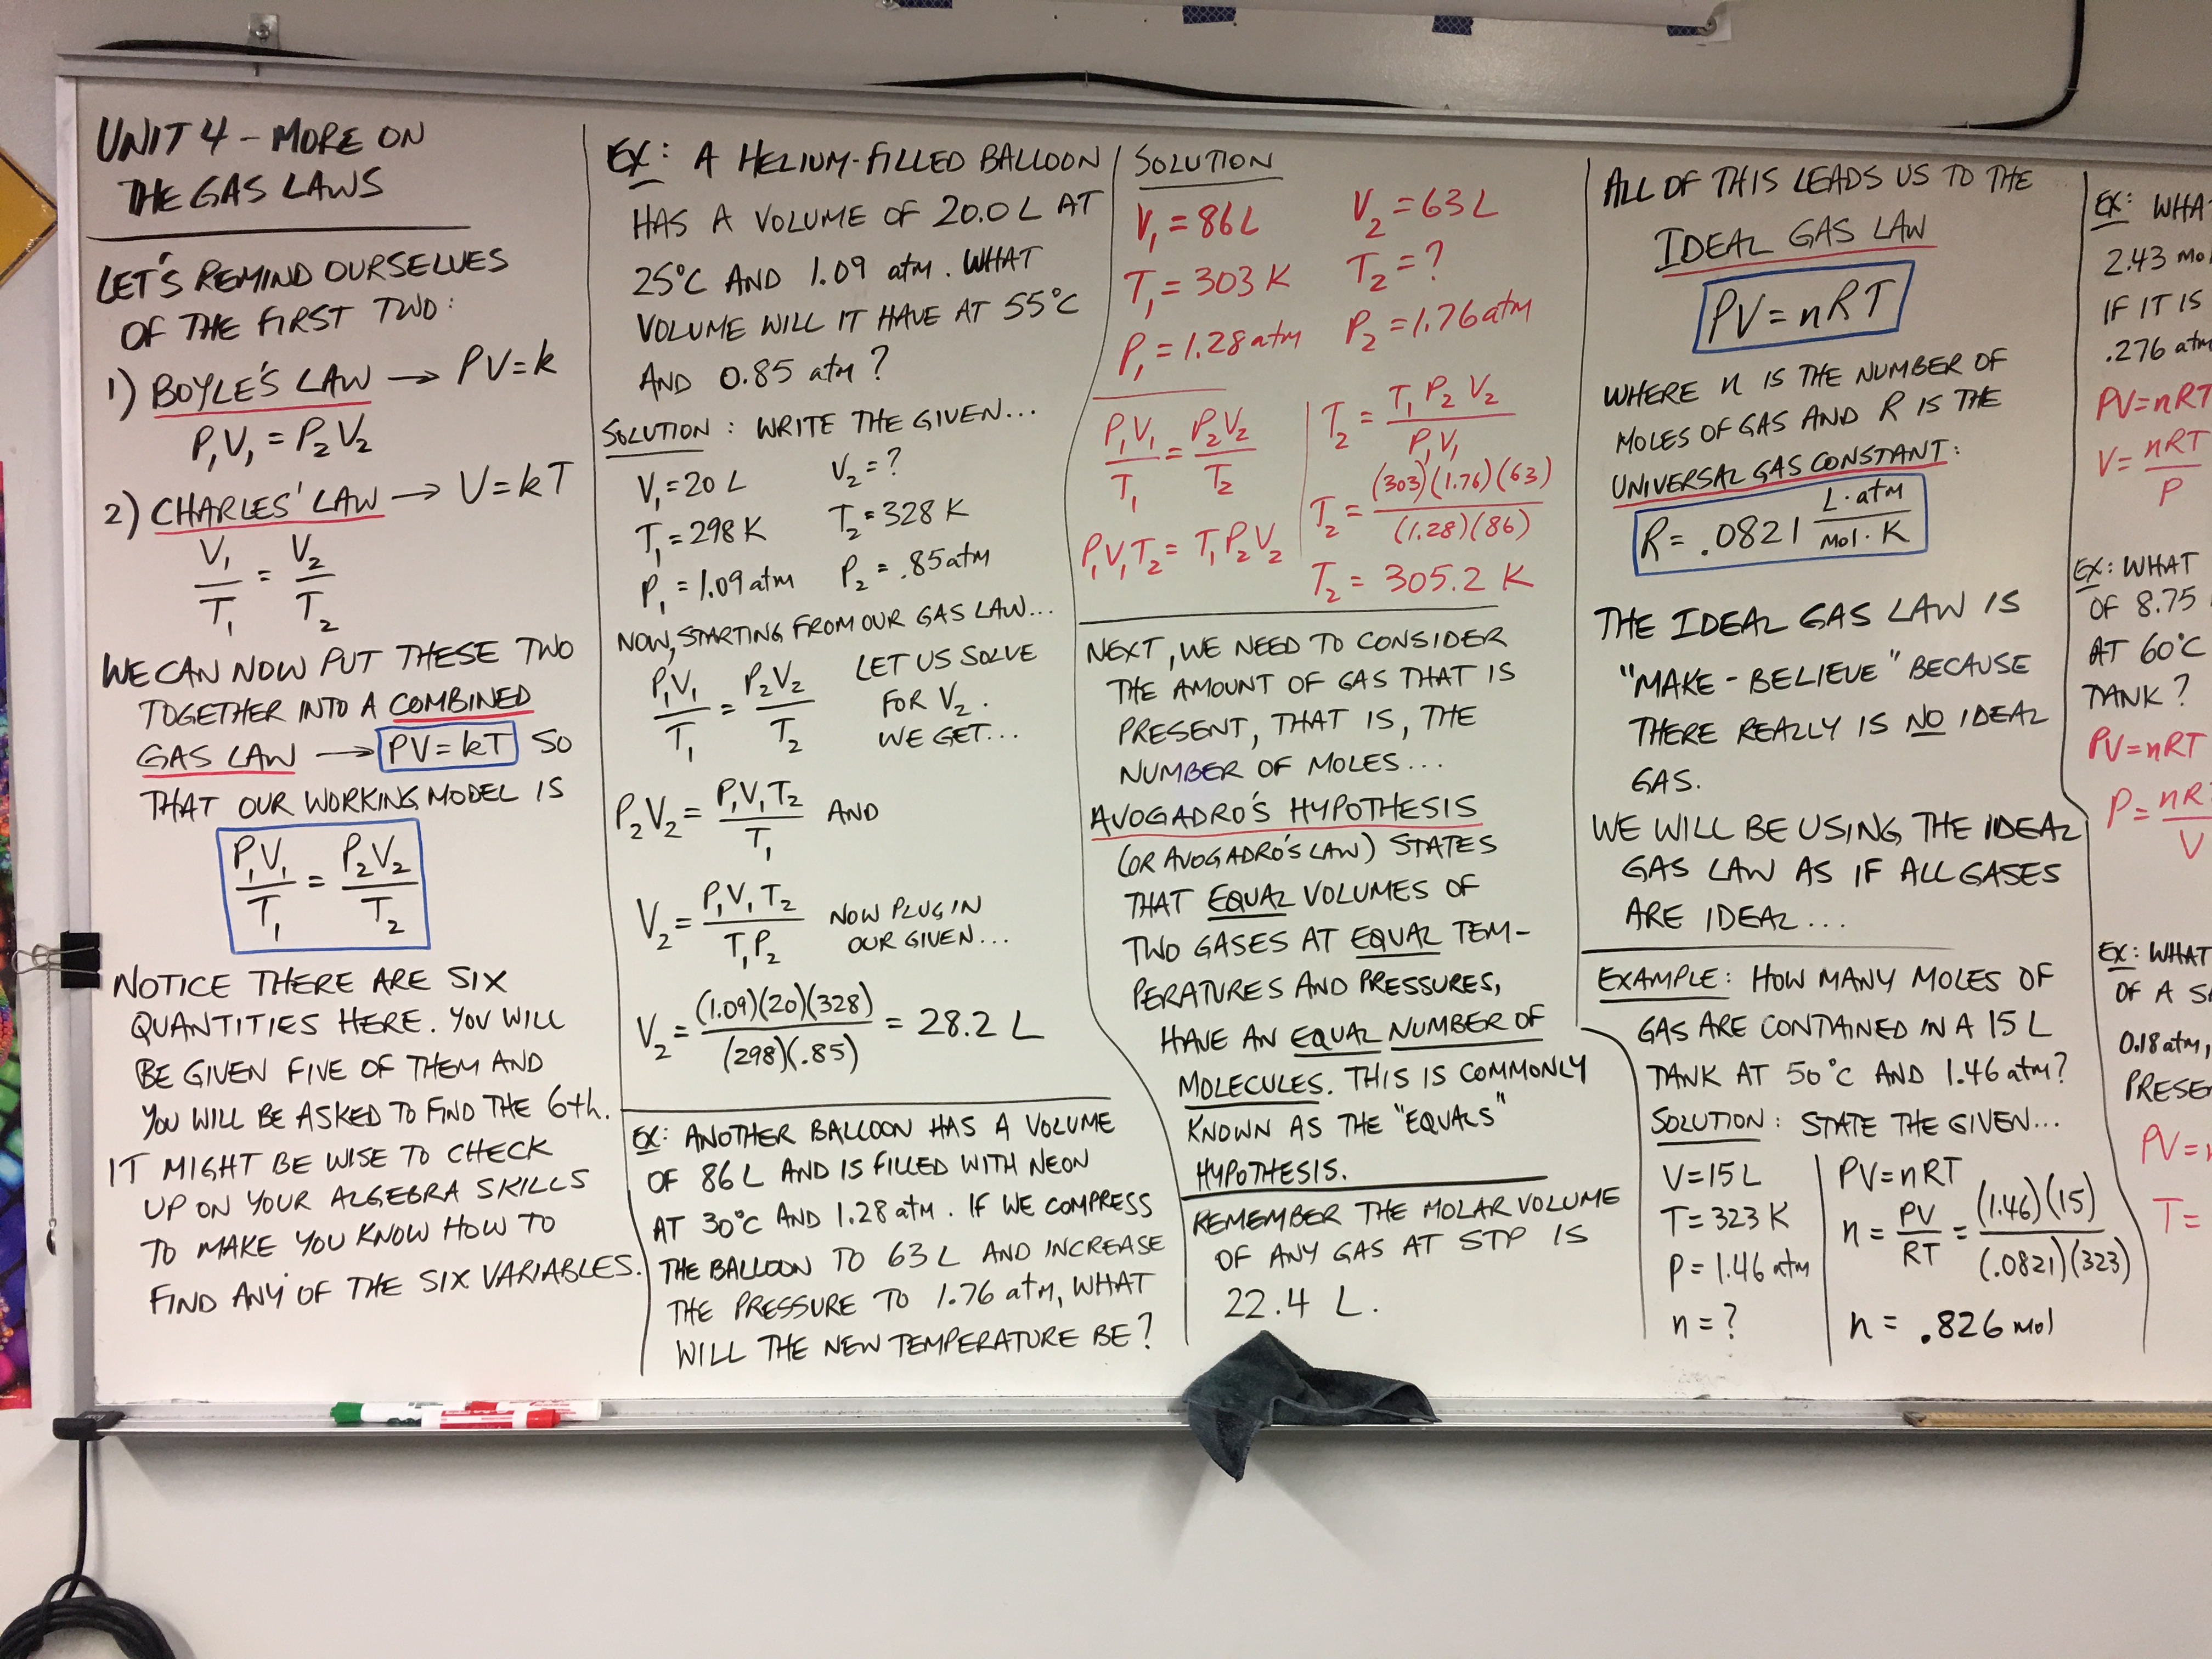 UNIT 4 – MORE ON
THE GAS LAWS
LET'S REMIND OURSELVES
OF THE FIRST TWO:
1) BOYLE'S LAW → PV = k
P₁V₁ = P₂V₂
2) CHARLES' LAW → V = kT
V₁/T₁ = V₂/T₂
WE CAN NOW PUT THESE TWO
TOGETHER INTO A COMBINED
GAS LAW → PV = kT SO
THAT OUR WORKING MODEL IS
P₁V₁/T₁ = P₂V₂/T₂
NOTICE THERE ARE SIX
QUANTITIES HERE. YOU WILL
BE GIVEN FIVE OF THEM AND
YOU WILL BE ASKED TO FIND THE 6th.
IT MIGHT BE WISE TO CHECK
UP ON YOUR ALGEBRA SKILLS
TO MAKE YOU KNOW HOW TO
FIND ANY OF THE SIX VARIABLES.
EX: A HELIUM-FILLED BALLOON
HAS A VOLUME OF 20.0 L AT
25°C AND 1.09 atm. WHAT
VOLUME WILL IT HAVE AT 55°C
AND 0.85 atm?
SOLUTION: WRITE THE GIVEN...
V₁ = 20 L V₂ = ?
T₁ = 298 K T₂ = 328 K
P₁ = 1.09 atm P₂ = .85 atm
NOW, STARTING FROM OUR GAS LAW...
P₁V₁/T₁ = P₂V₂/T₂ LET US SOLVE
FOR V₂.
WE GET...
P₂V₂ = P₁V₁T₂/T₁ AND
V₂ = P₁V₁T₂/T₁P₂ NOW PLUG IN
OUR GIVEN...
V₂ = (1.09)(20)(328)/(298)(.85) = 28.2 L
EX: ANOTHER BALLOON HAS A VOLUME
OF 86 L AND IS FILLED WITH NEON
AT 30°C AND 1.28 atm. IF WE COMPRESS
THE BALLOON TO 63 L AND INCREASE
THE PRESSURE TO 1.76 atm, WHAT
WILL THE NEW TEMPERATURE BE?
SOLUTION
V₁ = 86 L V₂ = 63 L
T₁ = 303 K T₂ = ?
P₁ = 1.28 atm P₂ = 1.76 atm
P₁V₁/T₁ = P₂V₂/T₂
P₁V₁T₂ = T₁P₂V₂
T₂ = T₁P₂V₂/P₁V₁
T₂ = (303)(1.76)(63)/(1.28)(86)
T₂ = 305.2 K
NEXT, WE NEED TO CONSIDER
THE AMOUNT OF GAS THAT IS
PRESENT, THAT IS, THE
NUMBER OF MOLES...
AVOGADRO'S HYPOTHESIS
(OR AVOGADRO'S LAW) STATES
THAT EQUAL VOLUMES OF
TWO GASES AT EQUAL TEM-
PERATURES AND PRESSURES,
HAVE AN EQUAL NUMBER OF
MOLECULES. THIS IS COMMONLY
KNOWN AS THE "EQUALS"
HYPOTHESIS.
REMEMBER THE MOLAR VOLUME
OF ANY GAS AT STP IS
22.4 L.
ALL OF THIS LEADS US TO THE
IDEAL GAS LAW
PV = nRT
WHERE n IS THE NUMBER OF
MOLES OF GAS AND R IS THE
UNIVERSAL GAS CONSTANT:
R = .0821 L·atm/mol·K
THE IDEAL GAS LAW IS
"MAKE-BELIEVE" BECAUSE
THERE REALLY IS NO IDEAL
GAS.
WE WILL BE USING THE IDEAL
GAS LAW AS IF ALL GASES
ARE IDEAL...
EXAMPLE: HOW MANY MOLES OF
GAS ARE CONTAINED IN A 15 L
TANK AT 50°C AND 1.46 atm?
SOLUTION: STATE THE GIVEN...
V = 15 L
T = 323 K
P = 1.46 atm
n = ?
PV = nRT
n = PV/RT = (1.46)(15)/(.0821)(323)
n = .826 mol
EX:
2.43
IF IT IS
.276 atm
PV = nRT
V = nRT/P
EX: WHAT
OF 8.75
AT 60°C
TANK?
PV = nRT
P = nR/V
EX: WHAT
OF A
0.18 atm,
PV =
T =